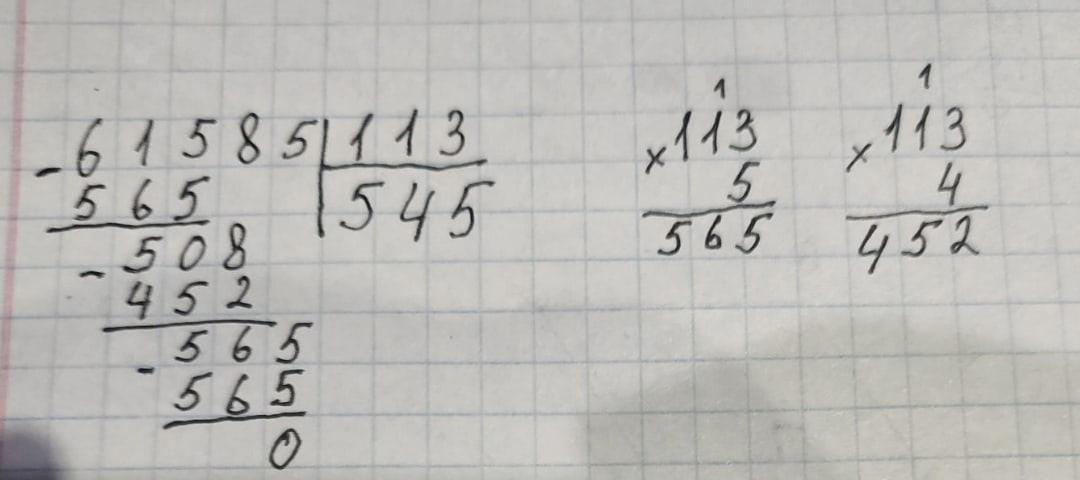 - 61585 | 113
565 | 545
- 508
452
- 565
565
0
1
× 113
5
565
1
× 113
4
452